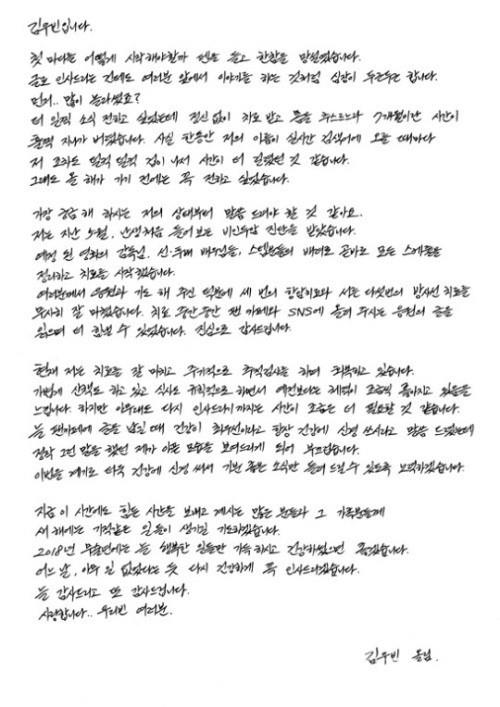 김우빈입니다.
첫 마디는 어떻게 시작해야할까 펜을 들고 한참을 망설였습니다.
글로 인사드리는 건데도 여러분 앞에서 이야기를 하는 것처럼 심장이 두근두근 합니다.
먼저.. 많이 놀라셨죠?
더 일찍 소식 전하고 싶었는데 정신 없이 치료 받고 몸을 추스르느라 7개월이란 시간이
훌쩍 지나가 버렸습니다. 사실 한동안 저의 이름이 실시간 검색어에 오를 때마다
저 조차도 덜컥 덜컥 겁이 나서 시간이 더 길었던 것 같습니다.
그래도 올 해가 가기 전에는 꼭 전하고 싶었습니다.
가장 궁금해 하시는 저의 상태부터 말씀 드려야 할 것 같아요.
저는 지난 5월, 난생처음 들어보는 비인두암 진단을 받았습니다.
예정 된 영화의 감독님, 선·후배 배우님들, 스텝분들의 배려로 곧바로 모든 스케줄을
정리하고 치료를 시작했습니다.
여러분께서 응원과 기도 해 주신 덕분에 세 번의 항암치료와 서른 다섯번의 방사선 치료를
무사히 잘 마쳤습니다. 치료 중간중간 팬 카페와 SNS에 올려 주시는 응원의 글을
읽으며 더 힘낼 수 있었습니다. 진심으로 감사드립니다.
현재 저는 치료를 잘 마치고 주기적으로 추적검사를 하며 회복하고 있습니다.
가볍게 산책도 하고 있고 식사도 규칙적으로 하면서 예전보다는 체력이 조금씩 좋아지고 있음을
느낍니다. 하지만 아무래도 다시 인사드리기까지는 시간이 조금은 더 필요할 것 같습니다.
늘 팬카페에 글을 남길 때 건강이 최우선이라고 항상 건강에 신경 쓰시라고 말씀 드렸었는데
정작 그런 말을 했던 제가 아픈 모습을 보여드리게 되어 부끄럽습니다.
이번을 계기로 더욱 건강에 신경 써서 기분 좋은 소식만 들려 드릴 수 있도록 노력하겠습니다.
지금 이 시간에도 힘든 시간을 보내고 계시는 많은 분들과 그 가족분들께
새 해에는 기적같은 일들이 생기길 기도하겠습니다.
2018년 무술년에는 늘 행복한 일들만 가득 하시고 건강하셨으면 좋겠습니다.
어느 날, 아무 일 없었다는 듯 다시 건강하게 꼭 인사드리겠습니다.
늘 감사드리고 또 감사드립니다.
사랑합니다.. 우리빈 여러분.
김우빈 올림.